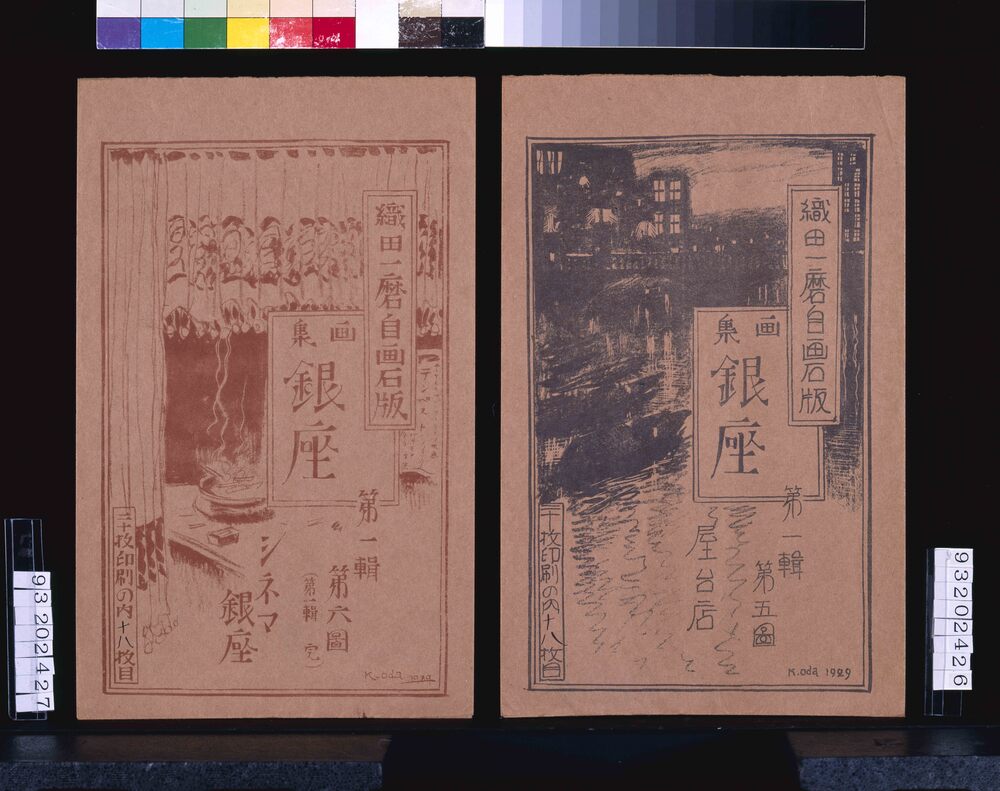 織田一磨自画石版
画集
銀座
第一輯
第六圖
シネマ
銀座
(第一輯 完)
テンペスト
三十枚印刷の内十八枚目
K.oda 1929
93202427
織田一磨自画石版
画集
銀座
第一輯
第五圖
屋台店
三十枚印刷の内十八枚目
K.oda 1929
93202426